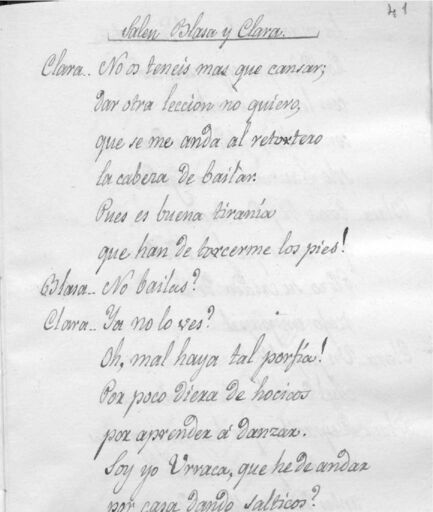 41
Salen Blasa y Clara.
Clara.. No os teneis mas que cansar;
dar otra leccion no quiero,
que se me anda al retortero
la cabeza de bailar.
Pues es buena tiranía
que han de torcerme los pies!
Blasa.. No bailas?
Clara.. Ya no lo ves?
Oh, mal haya tal porfía!
Por poco diera de hocicos
por aprender á danzar.
Soy yo Urraca, que he de andar
por casa dando salticos?